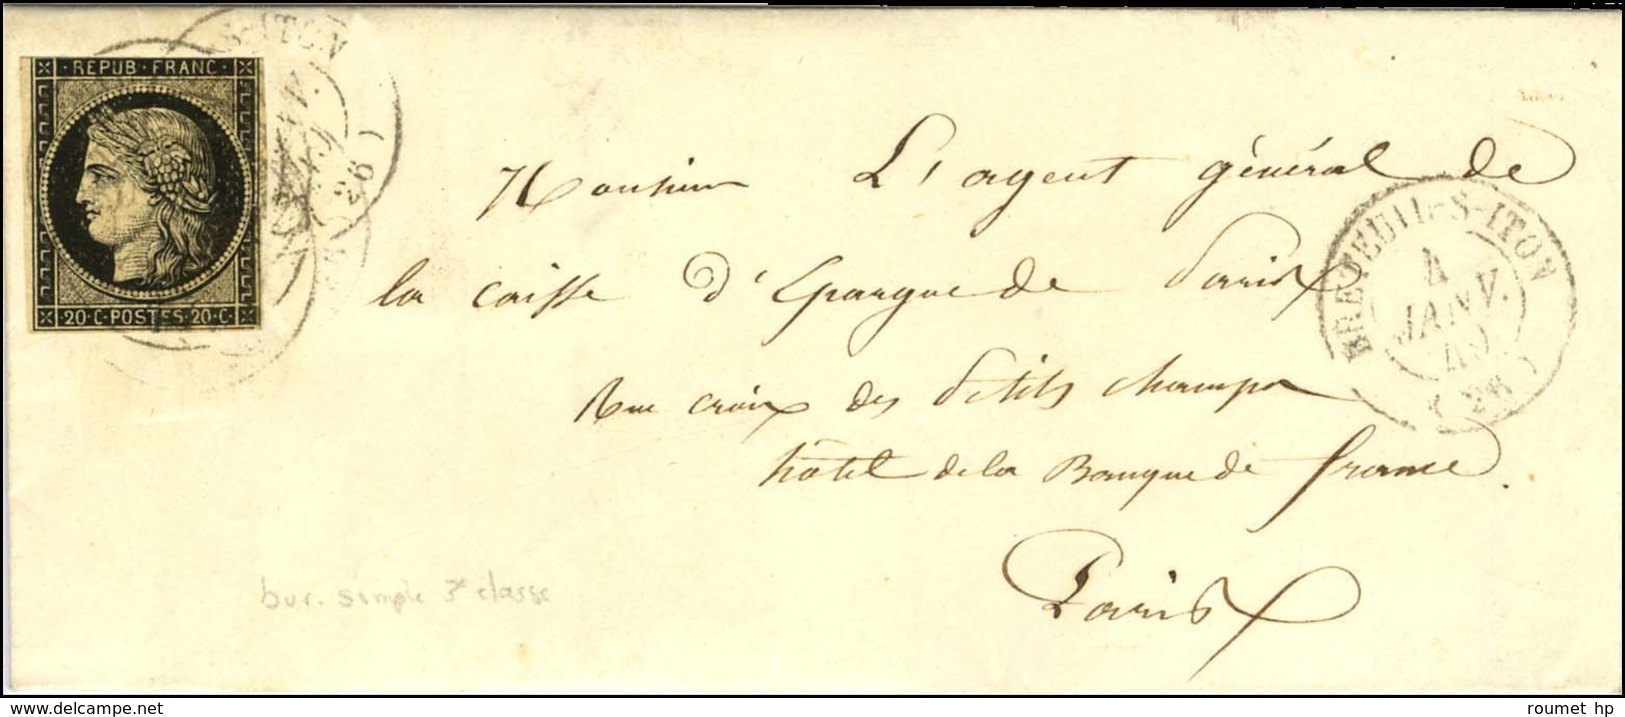 REPUB · FRANC ·
20 · C · POSTES · 20 · C ·
S-ITON
Monsieur L'agent général de
la caisse d'Epargne de Paris
Rue croix des Petits champs
hôtel de la Banque de france.
Paris
BRETEUIL-S-ITON
4
JANV.
49
(26)
bur. simple 3e classe
www.delcampe.net
roumet hp